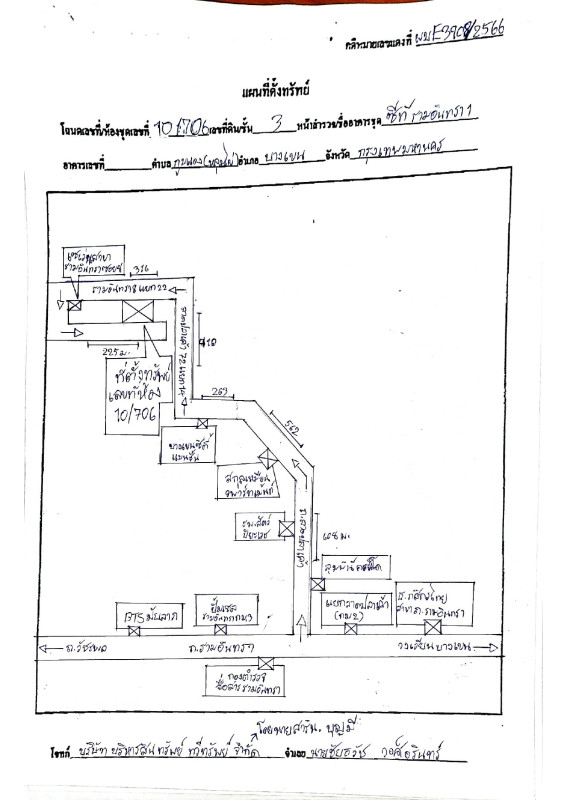 คดีหมายเลขแดงที่ ผบE3908/2566
แผนที่ตั้งทรัพย์
โฉนดเลขที่/ห้องชุดเลขที่ 10/706 เลขที่ดิน/ชั้น 3 หน้าสำรวจ/ชื่ออาคารชุด ซิตี้ รามอินทรา 1
อาคารเลขที่ ตำบล กูบแดง อำเภอ บางเขน จังหวัด กรุงเทพมหานคร
316
รามอินทรา 8 แยก 22
225 ม.
ที่ตั้งทรัพย์
เลขที่ห้อง
10/706
269
562
บางเขนซิตี้
แมนชั่น
อพาร์ทเม้นท์
รพ.สัตว์
ถ.ลาดปลาเค้า
BTS มัยลาภ
รามอินทรา กม.3
แยกลาดปลาเค้า
(กม.2)
ธ.กสิกรไทย
สาขา ถ.รามอินทรา
ถ.วัชรพล
ถ.รามอินทรา
วงเวียนบางเขน
กองตำรวจ
สื่อสาร รามอินทรา
โดยนายสารัน บุญมี
โจทก์ บริษัท บริหารสินทรัพย์ ทวีทรัพย์ จำกัด จำเลย นายชัยธวัช วงศ์อรินทร์